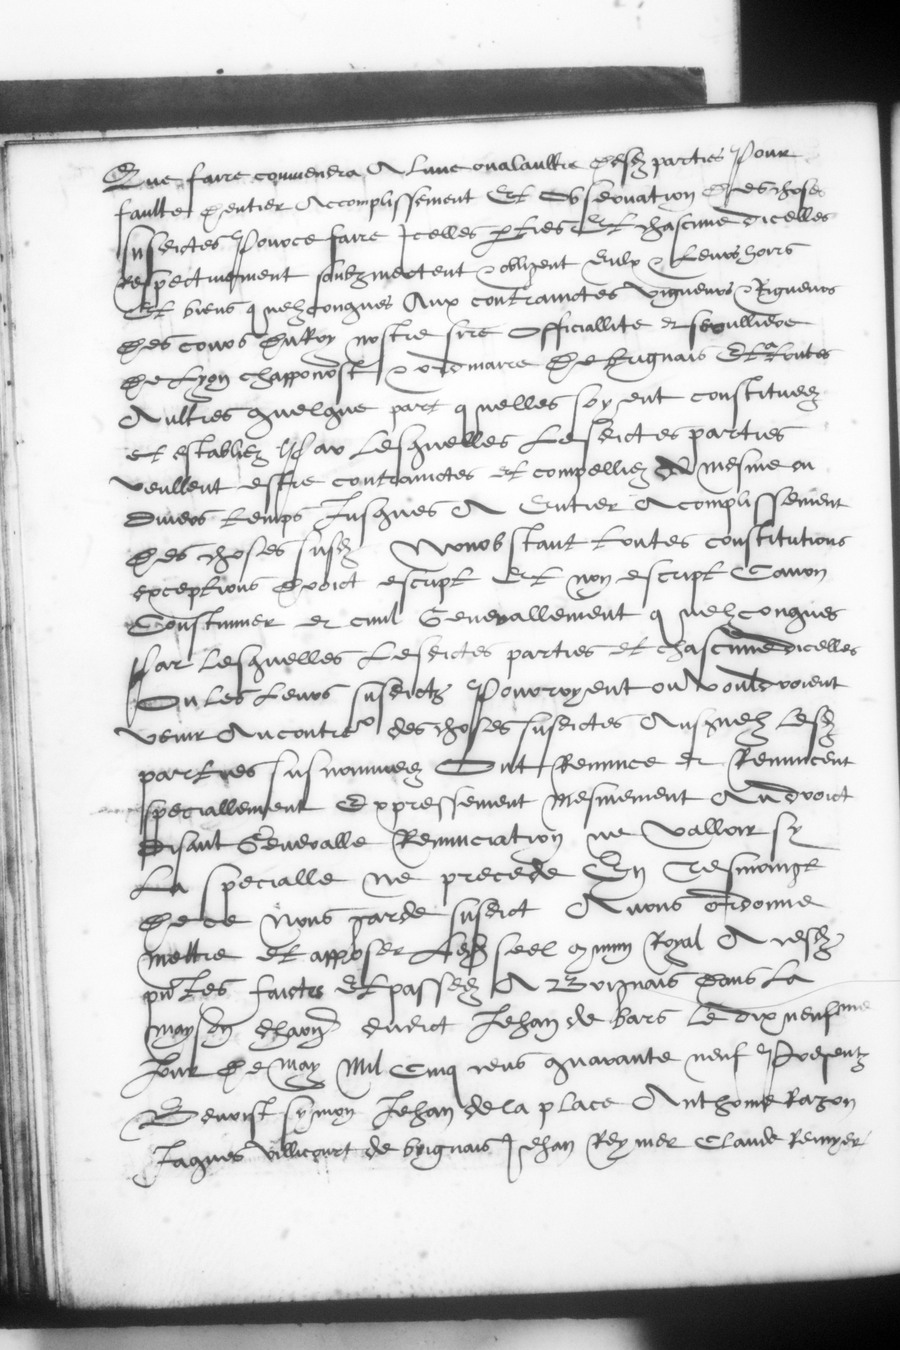 Que faire conviendra A lune ou alaultre desd parties Pour
faulte dentier Accomplissement Et Observation desd choses
susdictes Pour ce faire Icelles parties Et chascune dicelles
Respectivement soubzmectent & obligent Eulx & Leurs hoirs
Et biens quelzconques Aux contrainctes vigueurs & Rigueurs
des cours du Roy nostre sire Officiallite et seculliere
de Lyon chapponost & ordinaire de brignais Et a toutes
Aultres quelque part quelles soyent constituees
et establiez Par Lesquelles Lesdictes parties
veullent estre contrainctes et compelliez mesme en
divers temps Jusques A Entier Acomplissement
des choses susd Nonobstant toutes constitutions
exceptions droict escript Et non escript Canon
Coustumier et civil Generallement quelzconques
Par Lesquelles Lesdictes parties et chascune dicelles
Ou Les Leurs susdictz Pourroyent ou vouldroient
venir Au contre des choses susdictes Ausquelz lesd
parties susnommees Ont Renunce et Renuncent
speciallement Expressement mesmement Au droict
disant Generalle Renunciation ne valloir sy
La specialle ne precede En tesmoing
de ce Nous garde susdict Avons ordonne
mettre et apposer Led seel commun Royal A cesd
pntes faictes Et passees A Brignais dans La
mayson dudict Jehan de bars le dixneufme
Jour de may mil Cinq cens quarante neuf Presentz
Benoist symon Jehan de la place Anthoine Razon
Jaques villicourt de brignais Jehan Reymer Claude Remyer